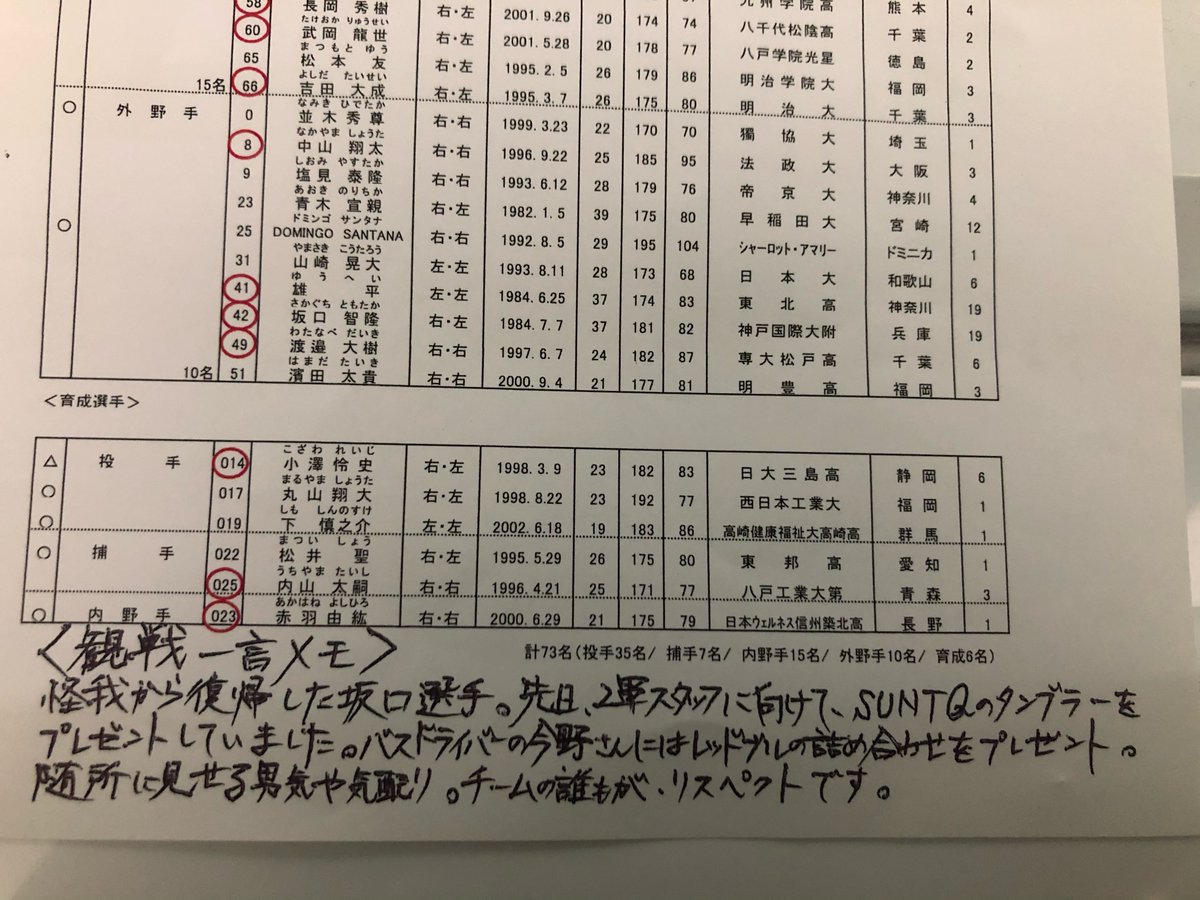 58 長岡 秀樹 右・左 2001. 9.26 20 174 74 九州学院高 熊本 4
たけおか りゅうせい
60 武岡 龍世 右・左 2001. 5.28 20 178 77 八千代松陰高 千葉 2
まつもと ゆう
65 松本 友 右・左 1995. 2. 5 26 179 86 八戸学院光星 徳島 2
よしだ たいせい
15名 66 吉田 大成 右・左 1995. 3. 7 26 175 80 明治学院大 福岡 3
なみき ひでたか
○ 外野手 0 並木 秀尊 右・右 1999. 3.23 22 170 70 明治大 千葉 3
なかやま しょうた
8 中山 翔太 右・右 1996. 9.22 25 185 95 獨協大 埼玉 1
しおみ やすたか
9 塩見 泰隆 右・右 1993. 6.12 28 179 76 法政大 大阪 3
あおき のりちか
23 青木 宣親 右・左 1982. 1. 5 39 175 80 帝京大 神奈川 4
ドミンゴ サンタナ
○ 25 DOMINGO SANTANA 右・右 1992. 8. 5 29 195 104 早稲田大 宮崎 12
やまさき こうたろう
31 山崎 晃大 左・左 1993. 8.11 28 173 68 シャーロット・アマリー ドミニカ 1
ゆうへい
41 雄平 左・左 1984. 6.25 37 174 83 日本大 和歌山 6
さかぐち ともたか
42 坂口 智隆 右・左 1984. 7. 7 37 181 82 東北高 神奈川 19
わたなべ だいき
49 渡邉 大樹 右・右 1997. 6. 7 24 182 87 神戸国際大附 兵庫 19
はまだ たいき
10名 51 濱田 太貴 右・右 2000. 9. 4 21 177 81 専大松戸高 千葉 6
明豊高 福岡 3
＜育成選手＞
こざわ れいじ
△ 投手 014 小澤 怜史 右・左 1998. 3. 9 23 182 83 日大三島高 静岡 6
まるやま しょうた
○ 017 丸山 翔大 右・左 1998. 8.22 23 192 77 西日本工業大 福岡 1
しも しんのすけ
○ 019 下 慎之介 左・左 2002. 6.18 19 183 86 高崎健康福祉大高崎高 群馬 1
まつい しょう
○ 捕手 022 松井 聖 右・左 1995. 5.29 26 175 80 東邦高 愛知 1
うちやま たいし
025 内山 太嗣 右・右 1996. 4.21 25 171 77 八戸工業大第 青森 3
あかはね よしひろ
○ 内野手 023 赤羽 由紘 右・右 2000. 6.29 21 175 79 日本ウェルネス信州築北高 長野 1
計73名(投手35名/ 捕手7名/ 内野手15名/ 外野手10名/ 育成6名)
＜観戦一言メモ＞
怪我から復帰した坂口選手。先日、2軍スタッフに向けて、SUNTQのタンブラーを
プレゼントしていました。バスドライバーの今野さんにはレッドブルの詰め合わせをプレゼント。
随所に見せる男気や気配り。チームの誰もが、リスペクトです。